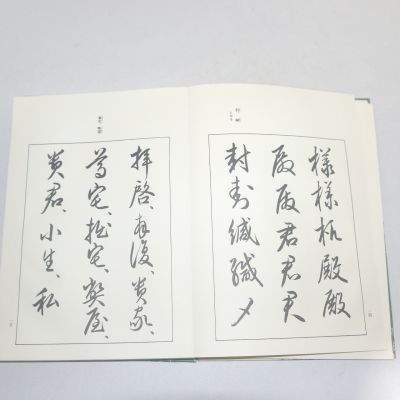 様様様殿殿
殿殿君君君
封封緘緘〆
拝啓、拝復、貴家、
尊宅、拙宅、弊屋、
貴君、小生、私